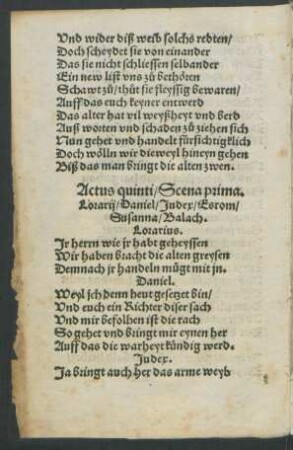 Vnd wider diß weib solchs redten/
Doch scheydet sie von einander
Das sie nicht schliessen selbander
Ein new list vns zů bethören
Schawt zů/thůt sie fleyssig bewaren/
Auff das euch keyner entwerd
Das alter hat vil weyßheyt vnd berd
Auß worten vnd schaden zů ziehen sich
Nun gehet vnd handelt fürsichtigklich
Doch wölln wir dieweyl hineyn gehen
Biß das man bringt die alten zwen.
Actus quinti/Scena prima.
Lorarij/Daniel/Judex/Esrom/
Susanna/Balach.
Lorarius.
Jr herrn wie jr habt geheyssen
Wir haben bracht die alten greysen
Demnach jr handeln mügt mit jn.
Daniel.
Weyl jch denn heut gesetzet bin/
Vnd euch ein Richter diser sach
Vnd mir befolhen ist die rach
So gehet vnd bringt mir eynen her
Auff das die warheyt kündig werd.
Judex.
Ja bringt auch her das arme weyb